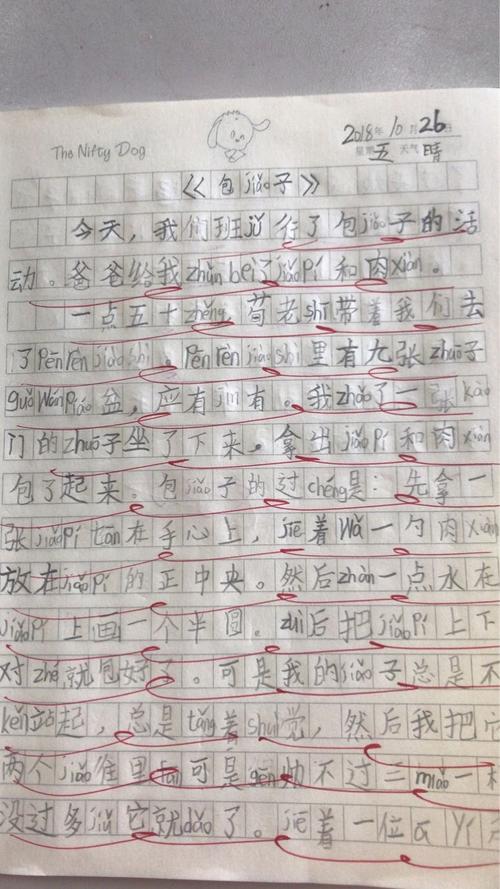 The Nifty Dog
2018年10月26日
星期五 天气晴
《包jiǎo子》
今天，我们班jǔ行了包jiǎo子的活
动。爸爸给我zhǔn bèi了jiǎo pí和肉xiàn。
一点五十zhěng，荀老shī带着我们去
了Pēn rèn jiào shì。Pēn rèn jiào shì里有九张zhuō子
guō wǎn piáo盆，应有jìn有。我zhǎo了一张kào
门的zhuō子坐了下来，拿出jiǎo pí和肉xiàn
包了起来。包jiǎo子的过chéng是：先拿一
张jiǎo pí tān在手心上，jiē着wǎ一勺肉xiàn
放在jiǎo pí的正中央。然后zhàn一点水在
jiǎo pí上画一个半圆。zuì后把jiǎo pí上下
对zhé就包好了。可是我的jiǎo子总是不
kěn立起，总是tǎng着shuì觉，然后我把它
两个jiǎo往里 可是gēn 不过三miǎo一
没过多jiǔ它就dǎo了。jiē着一位 yí